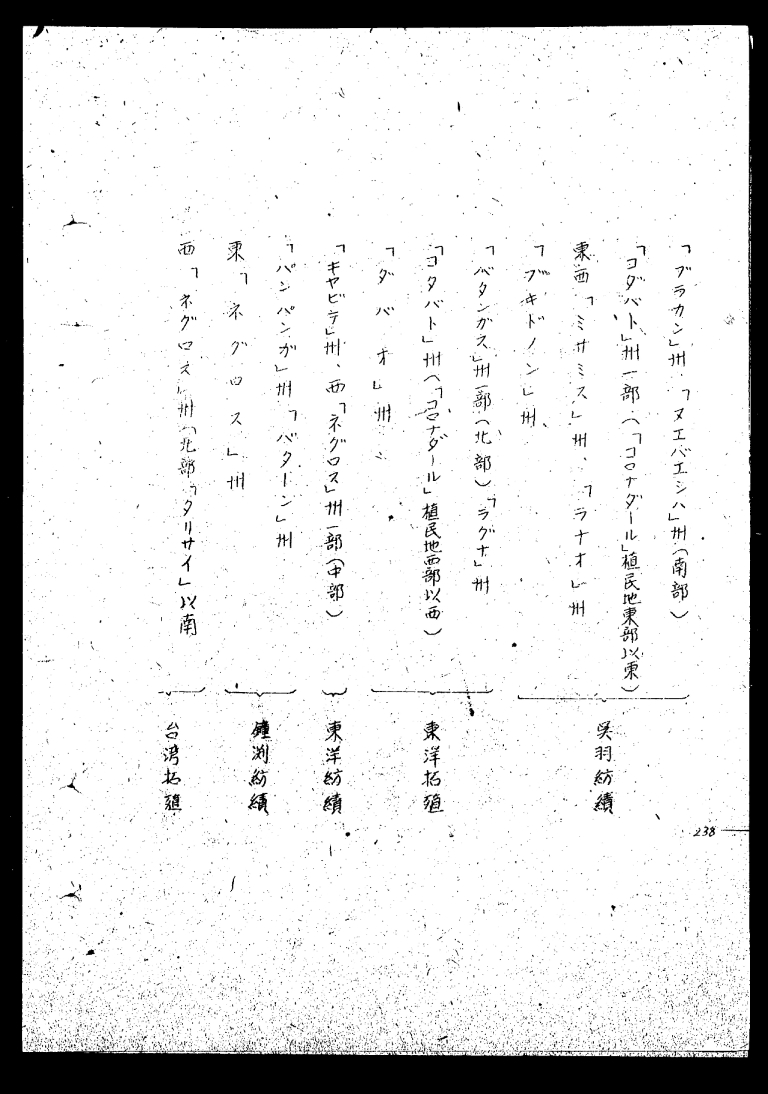 「ブラカン」州「ヌエバエシハ」州(南部)
「コタバト」州一部(「コロナダール」植民地東部以東)
東西「ミサミス」州、「ラナオ」州
「ブキドノン」州、
呉羽紡績
「バタンガス」州一部(北部)「ラグナ」州
「コタバト」州(「コロナダール」植民地西部以西)
「ダバオ」州
東洋拓殖
「キヤビテ」州、西「ネグロス」州一部(中部)
東洋紡績
「パンパンガ」州「バターン」州
東「ネグロス」州
鐘渕紡績
西「ネグロス」州(北部「タリサイ」以南
台湾拓殖
238